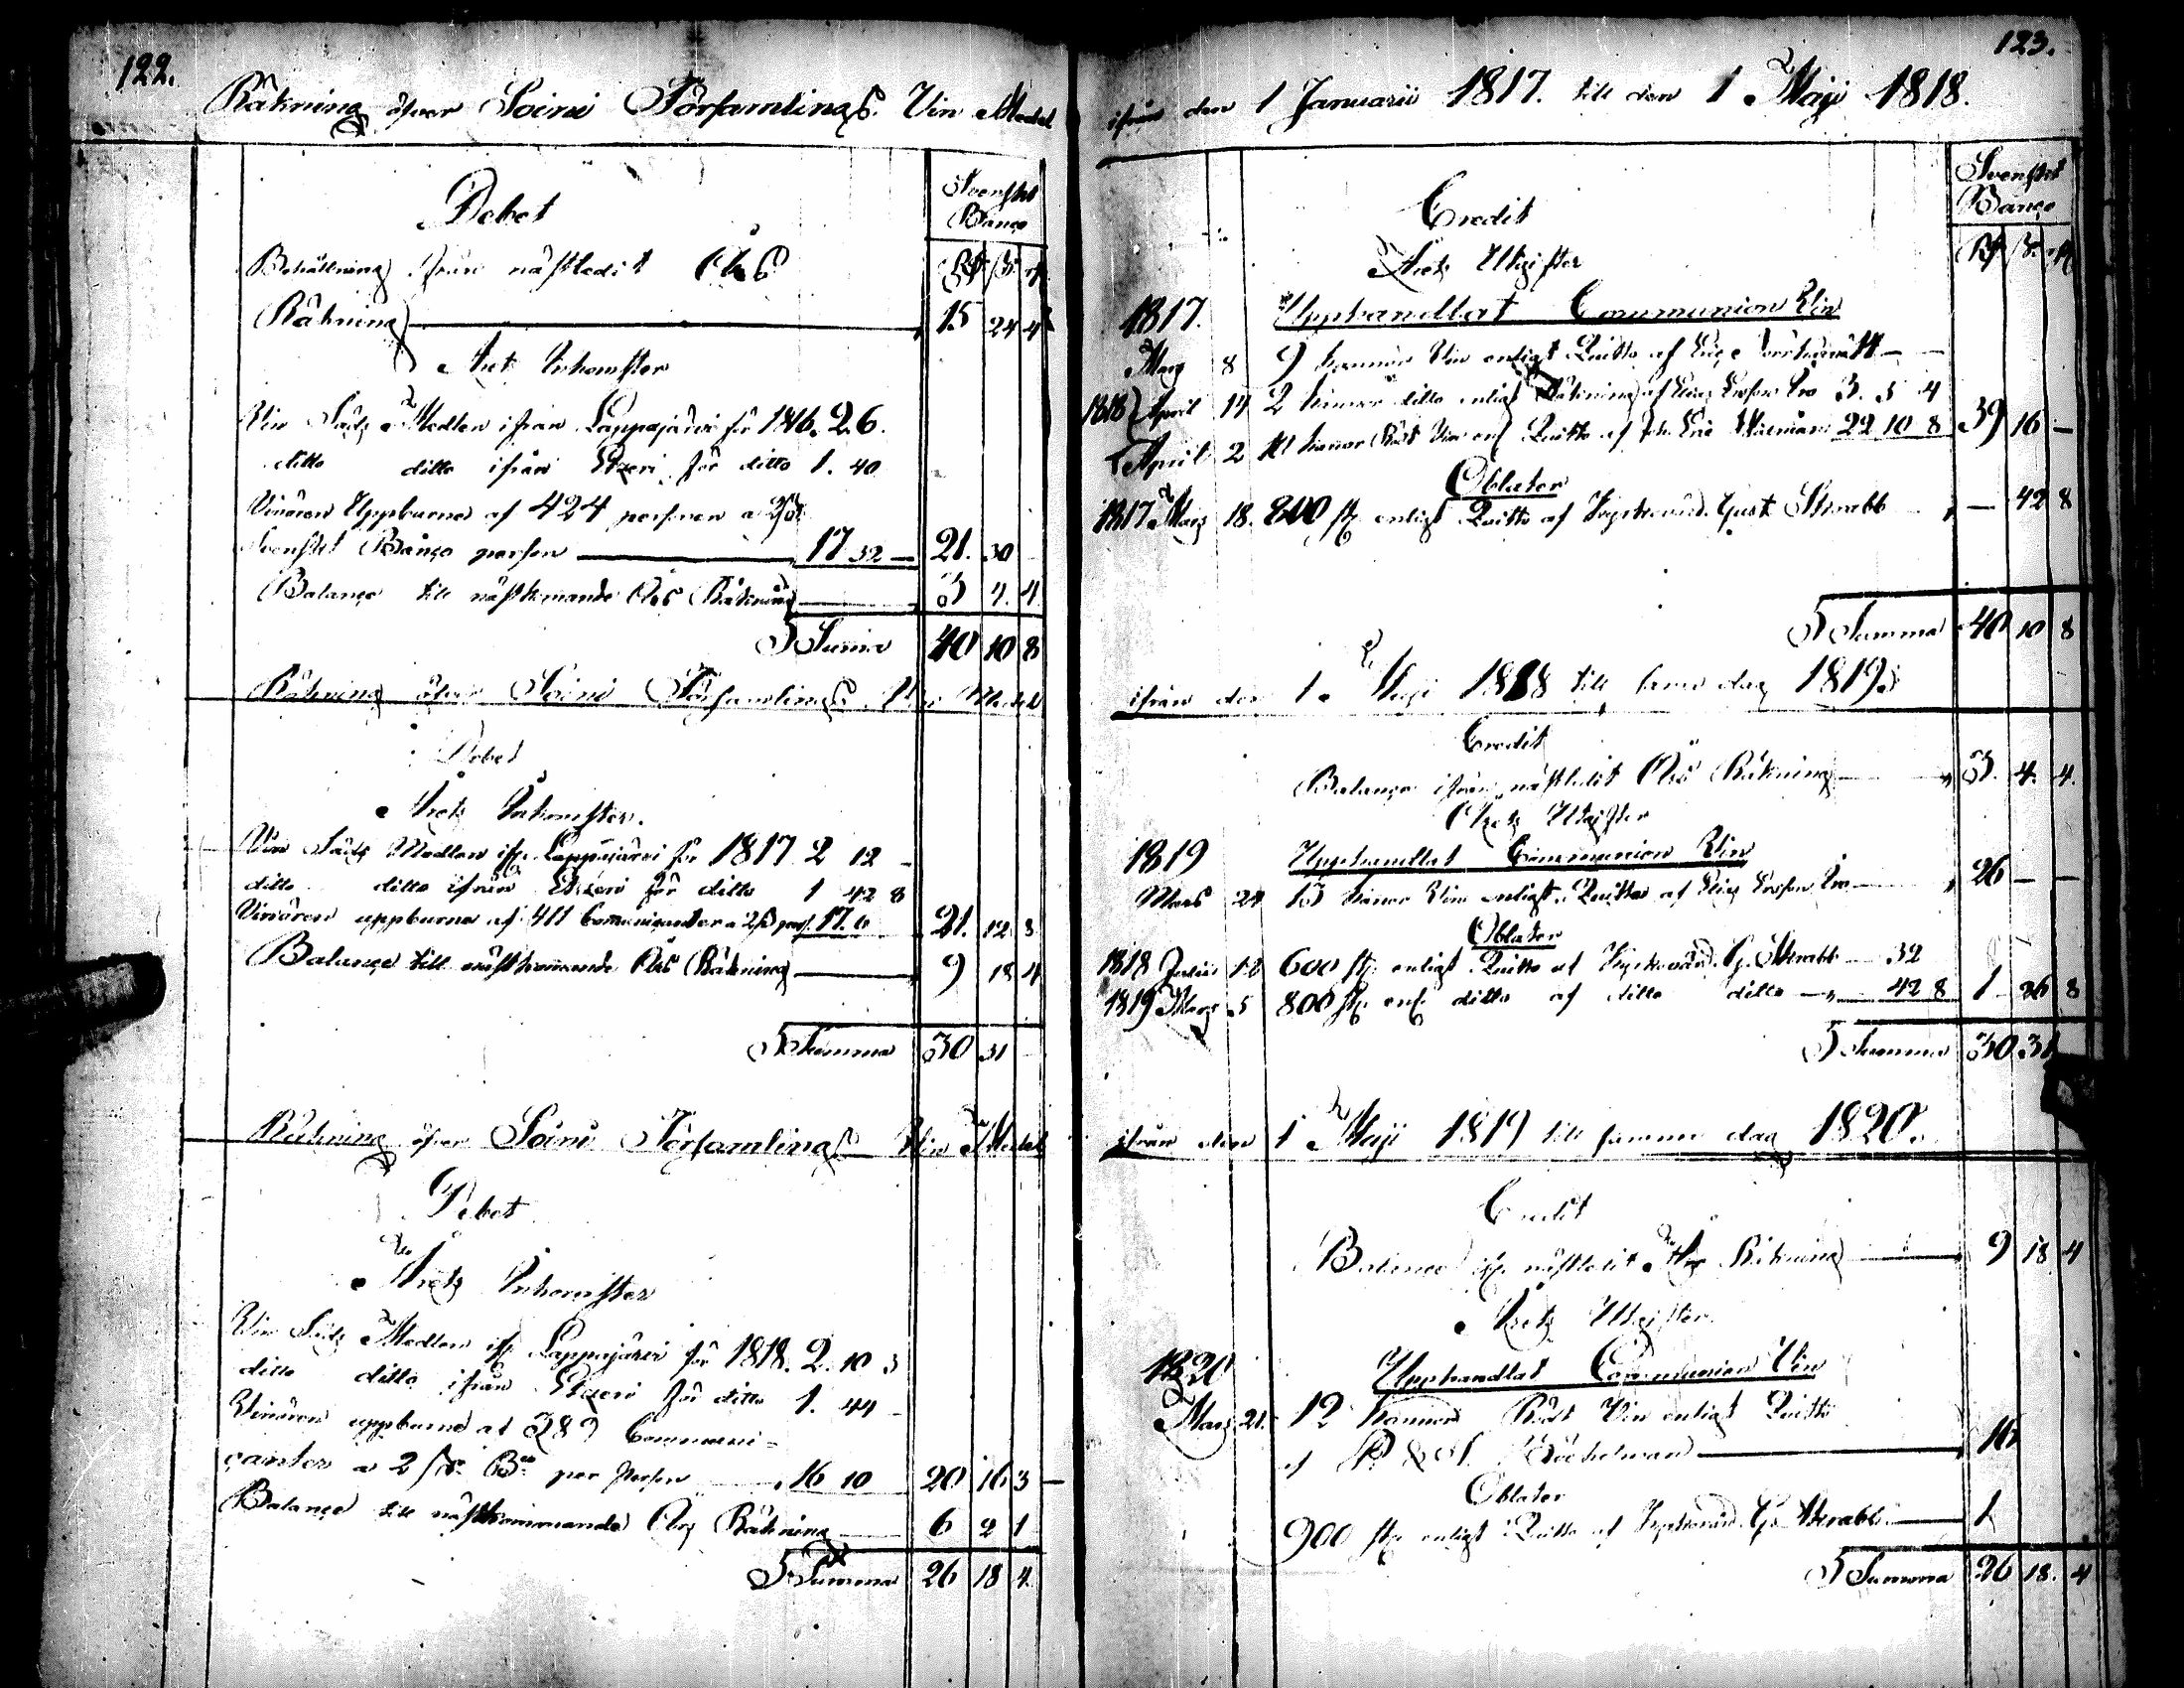 122.
Räkning öfver Soini Församlings Vin Medel
Debet
Svenskt
Banco
Behållning ifrån nästledit Års
Räkning 15 24 4
Årets Inkomster
Vin Säds Medlen ifrån Lappajärvi för 1816. 2. 6.
ditto ditto ifrån Etzeri för ditto 1. 40
Vinören Uppburne af 424 personer a 2 ß
Svenskt Banco person 17 32 — 21. 30
Balance till nästkommande Års Räkning 3 4. 4.
Summa 40 10 8
Räkning öfver Soini Församlings Vin Medel
Debet
Årets Inkomster.
Vin Säds Medlen ifr. Lappajärvi för 1817 2 12 —
ditto ditto ifrån Etzeri för ditto 1 42 8
Vinören uppburne af 411 Communicanter a 2 ß pers. 17. 6 21. 12 8
Balance till nästkommande Års Räkning 9 18 4
Summa 30 31
Räkning öfver Soini Församlings Vin Medel
Debet
Årets Inkomster
Vin Säds Medlen ifr. Lappajärvi för 1818. 2. 10 3
ditto ditto ifrån Etzeri för ditto 1. 44 —
Vinören uppburne af 389 Communi=
canter a 2 ß Bco per person 16 10 20 16 3
Balance till nästkommande Års Räkning 6 2 1
Summa 26 18 4.
123.
ifrån den 1 Januarii 1817. till den 1 Maji 1818.
Credit
Svenskt
Banco
Årets Utgifter
1817. Upphandlat Communion Vin
Mars 8 9 kannor Vin enligt Quitto af
1818 April 14 2 kannor ditto enligt Räkning af 3. 5 4
April 2 10 kannor Rödt Vin enl. Quitto af 22 10 8 39 16 —
Oblater
1817 Mars 18. 800 st. enligt Quitto af Kyrkovärd. Gust. Skrabb — 42 8
Summa 40 10 8
ifrån den 1. Maji 1818 till samma dag 1819.
Credit
Balance ifrån nästledit Års Räkning 3. 4. 4.
Årets Utgifter
1819 Upphandlat Communion Vin
Mars 24 13 kannor Vin enligt Quitto af 26 — —
Oblater
1818 Julii 12 600 st. enligt Quitto af Kyrkovärd. G. Skrabb 32
1819 Mars 5 800 st. enl. ditto af ditto ditto 42 8 1 26 8
Summa 30 31
ifrån den 1 Maji 1819 till samma dag 1820.
Credit
Balance ifr. nästledit Års Räkning 9 18 4
Årets Utgifter.
1820 Upphandlat Communion Vin
Mars 21. 12 kannor Rödt Vin enligt Quitto
af 16
Oblater
900 st. enligt Quitto af Kyrkovärd. G. Skrabb 1
Summa 26 18. 4